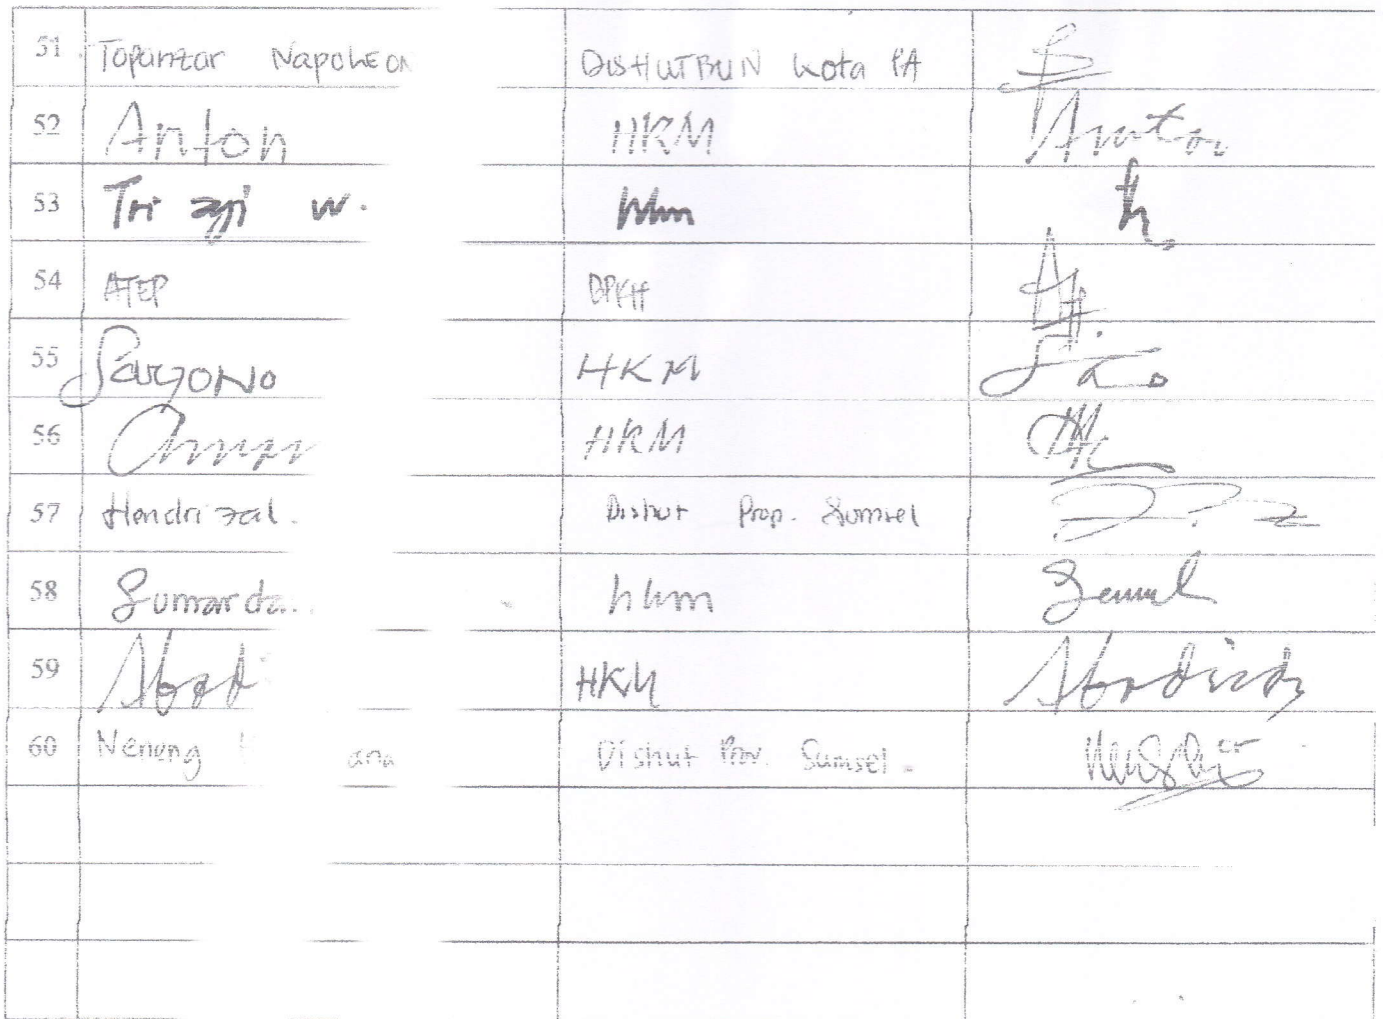 51. Topanzar Napoleon DISHUTBUN Kota PA
52 Anton HKM Anton
53 Tri aji w. hkm
54 ATEP BPKH
55 SaryoNo HKM
56 HKM
57 Hendrizal. Dishut Prop. Sumsel
58 Sumarda hkm
59 Abadi HKM
60 Neneng Dishut Prov. Sumsel.